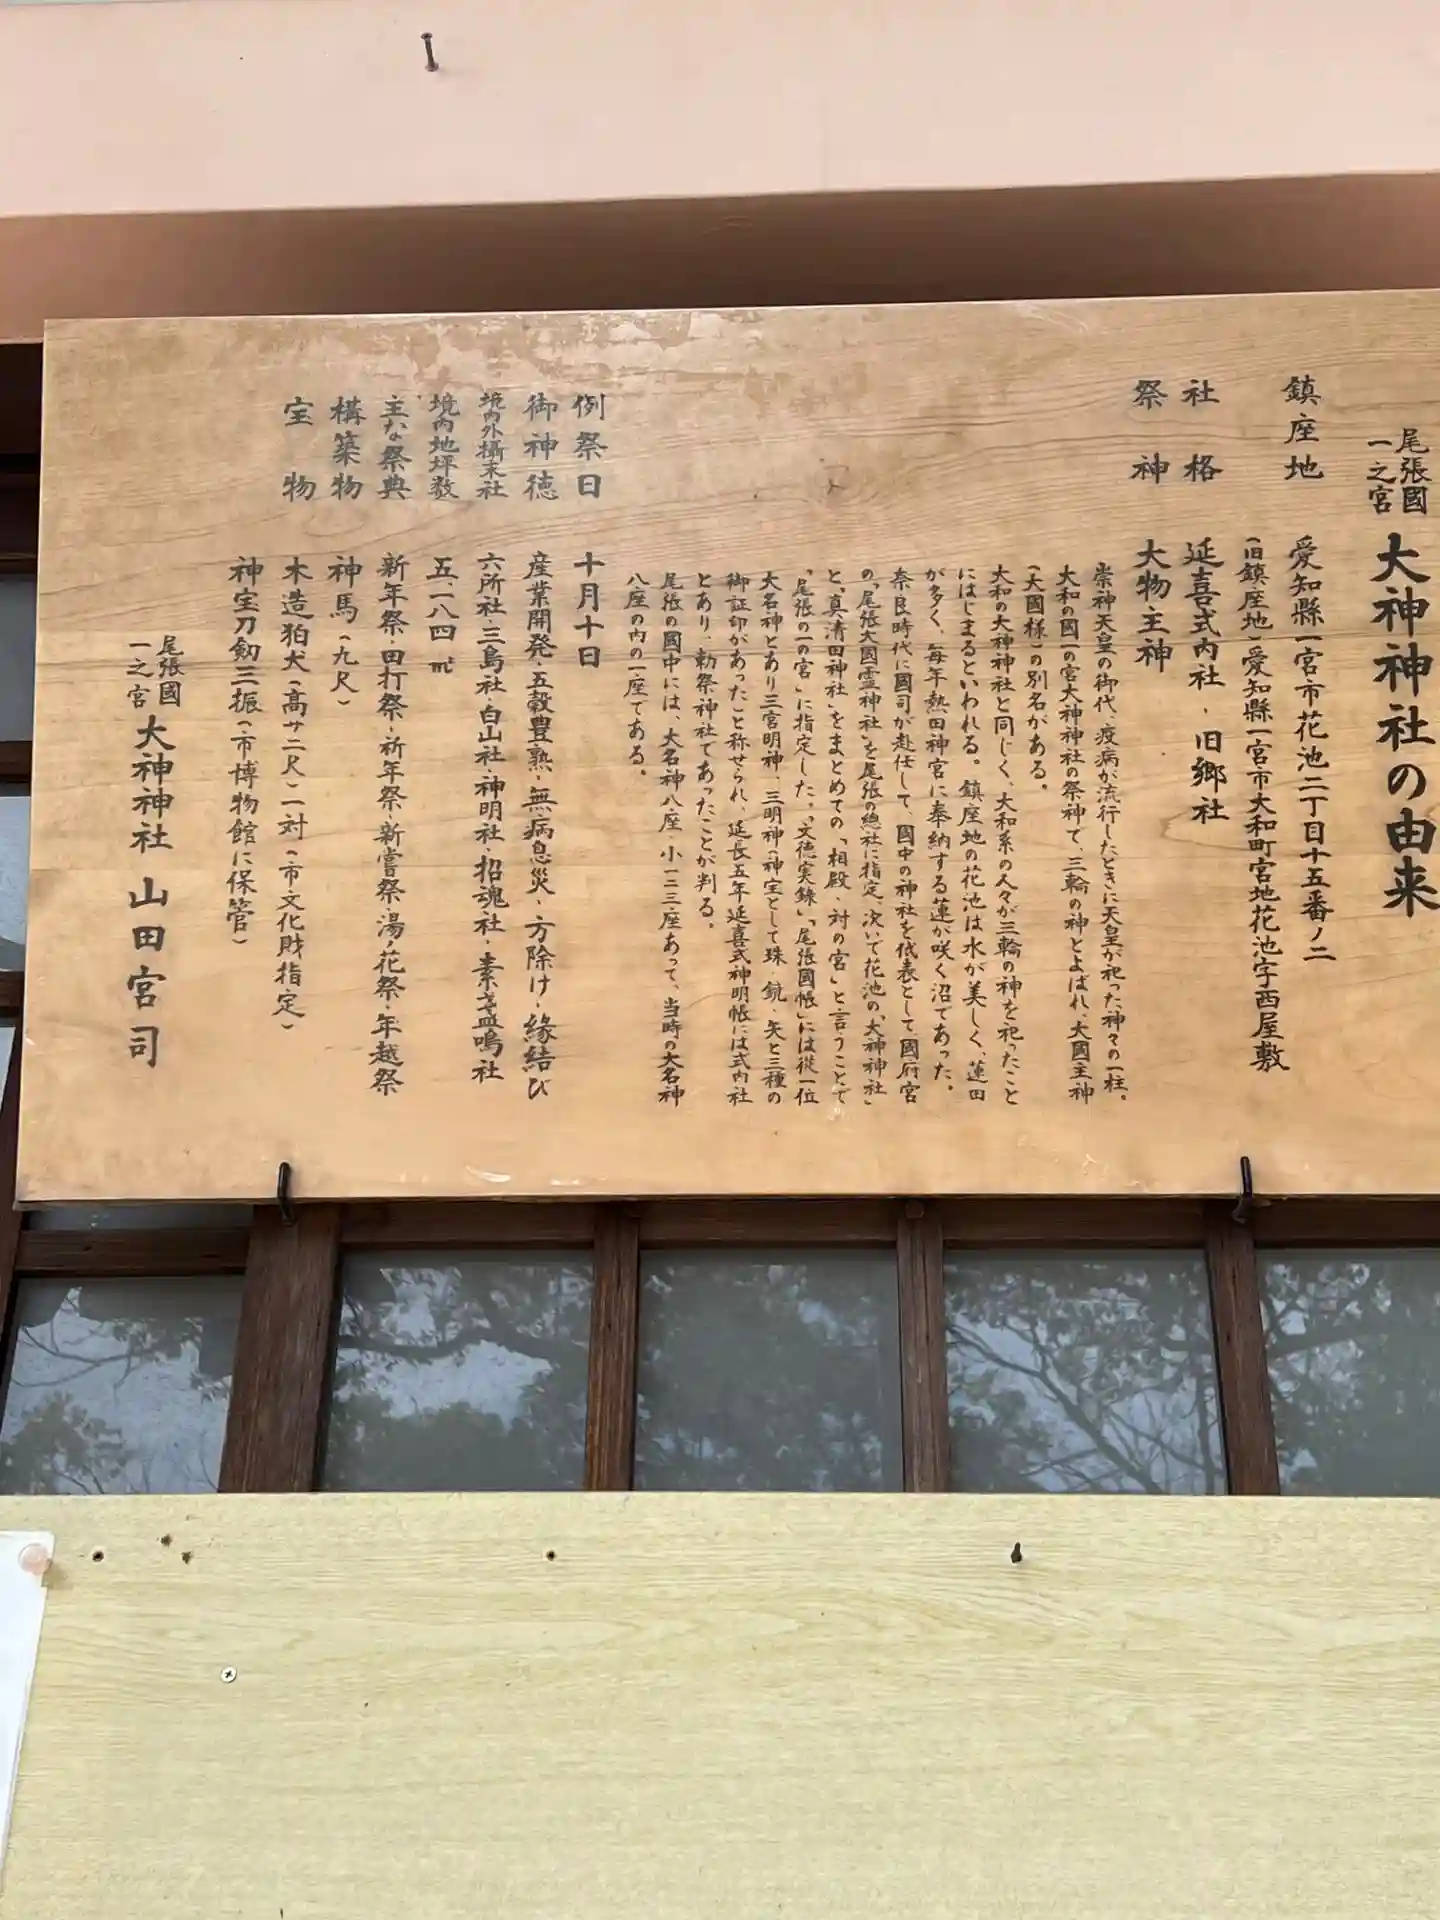 尾張國
一之宮
大神神社の由来
鎮座地 愛知縣一宮市花池二丁目十五番ノ二
(旧鎮座地)愛知縣一宮市大和町宮地花池字西屋敷
社格 延喜式内社・旧郷社
祭神 大物主神
崇神天皇の御代、疫病が流行したときに天皇が祀った神々の一柱。
大和の國一の宮大神神社の祭神で、三輪の神とよばれ、大國主神
(大國様)の別名がある。
大和の大神神社と同じく、大和系の人々が三輪の神を祀ったこと
にはじまるといわれる。鎮座地の花池は水が美しく、蓮田
が多く、毎年熱田神宮に奉納する蓮が咲く沼であった。
奈良時代に國司が赴任して、國中の神社を代表として國府宮
の「尾張大國霊神社」を尾張の總社に指定、次いで花池の「大神神社」
と「真清田神社」をまとめての「相殿・対の宮」と言うことで
「尾張の一の宮」に指定した。「文徳実錄」「尾張國帳」には従一位
大名神とあり三宮明神、三明神(神宝として珠・鏡・矢と三種の
御証印があった)と称せられ、延長五年延喜式神明帳には式内社
とあり、勅祭神社であったことが判る。
尾張の國中には、大名神八座 小一一三座あって、当時の大名神
八座の内の一座である。
例祭日 十月十日
御神徳 産業開発・五穀豊熟・無病息災・方除け・縁結び
境内外攝末社 六所社・三島社・白山社・神明社・招魂社・素盞鳴社
境内地坪数 五、一八四㎡
主な祭典 新年祭・田打祭・祈年祭・新嘗祭・湯ノ花祭・年越祭
構築物 神馬(九尺)
宝物 木造狛犬(高サ二尺)一対(市文化財指定)
神宝刀劔三振(市博物館に保管)
尾張國
一之宮
大神神社 山田宮司